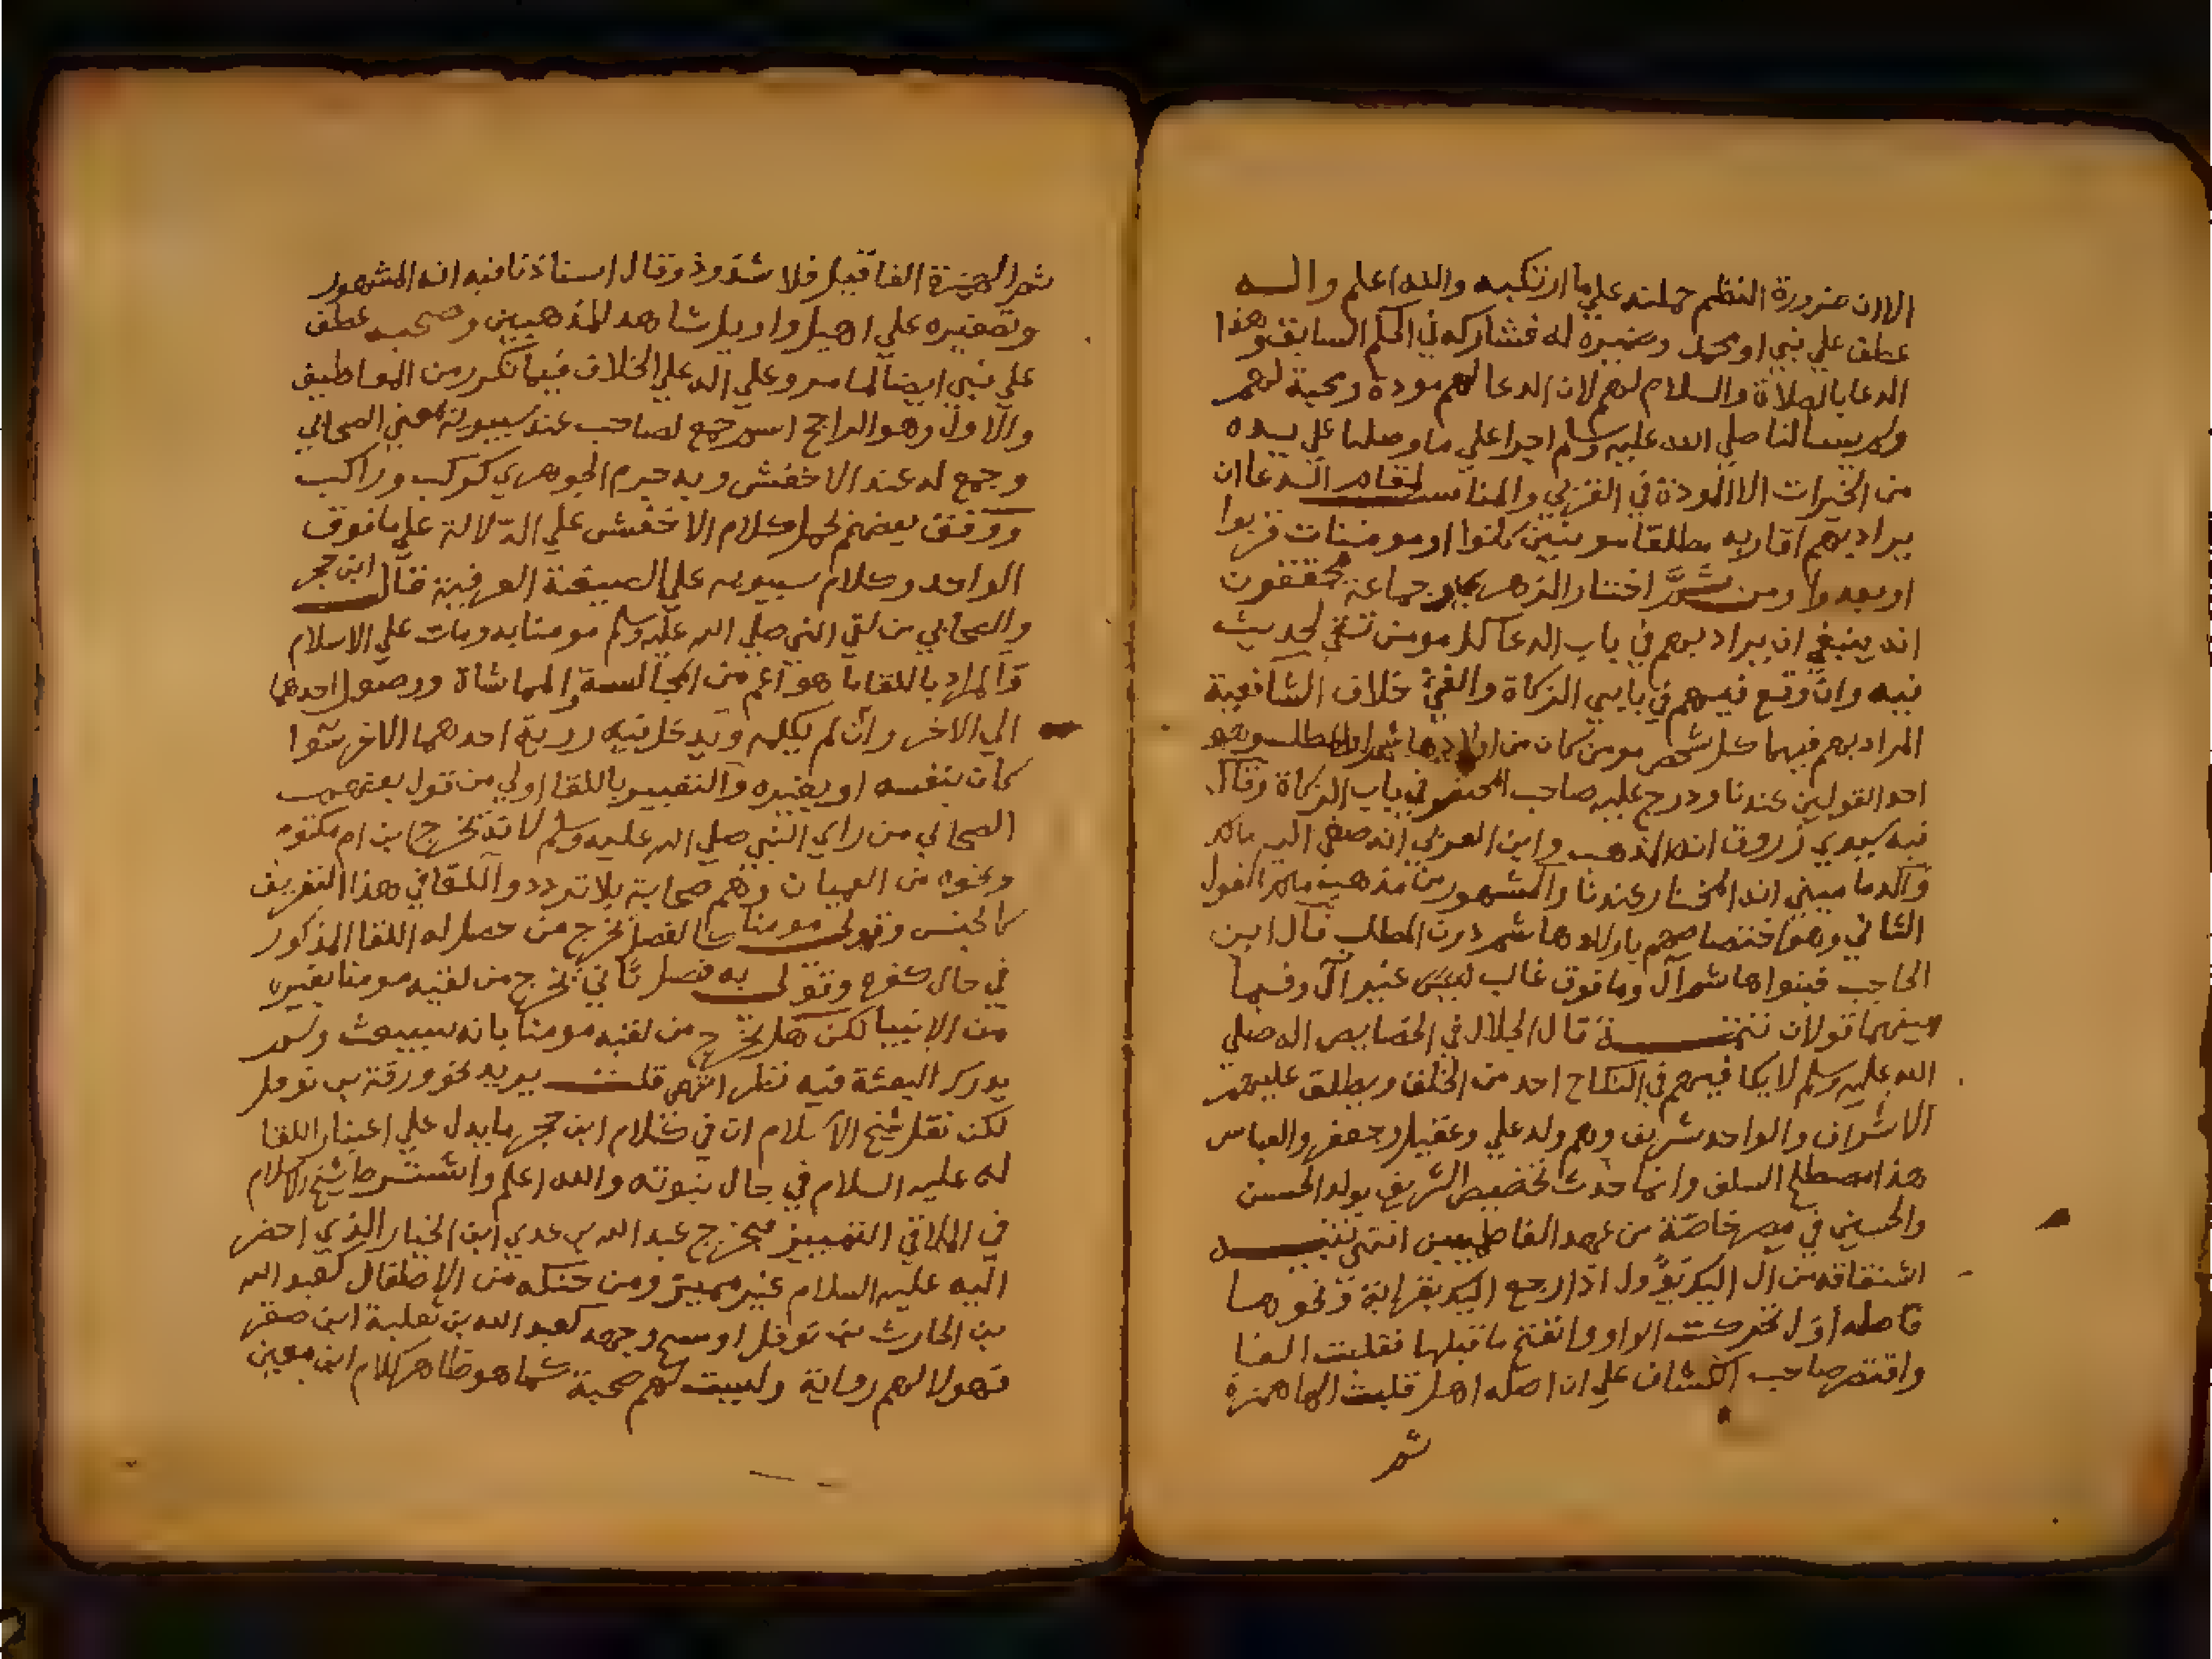 الا ان ضرورة النظم حملته علي ما ارتكبه والله اعلم واله
عطف علي نبي او محمد وضميره له فشاركه في الحكم السابق وهذا
الدعا بالصلاة والسلام لهم لان الدعا لهم مودة ومحبة لهم
ولم يسالنا صلي الله عليه وسلم اجرا علي ما وصلنا علي يده
من الخيرات الا المودة في القربي والمناسب لمقام الدعا ان
يراد بهم اقاربه مطلقا مومنين كانوا او مومنات قربوا
او بعدوا ومن ثم اختار الزهري وجماعة محققون
انه ينبغي ان يراد بهم في باب الدعا كل مومن تقي لحديث
فيه وان وقع فيهم في بابي الزكاة والفيء خلاف الشافعية
المراد بهم فيهما كل شخص مومن كان من اولاد هاشم او المطلب وهو
احد القولين عندنا ودرج عليه صاحب المختصر في باب الزكاة وقال
فيه سيدي زروق انه المذهب وابن العربي انه صغي اليه مالك
واكد ما مبني انه المختار عندنا والمشهور من مذهب القول
الثاني وهو اختصاصهم باولاد هاشم دون المطلب قال ابن
الحاجب فبنوا هاشم آل وما فوق غالب ليس غير آل وفيما
بينهما قولان تتمة قال الجلال في الخصايص اله صلي
الله عليه وسلم لا يكافيهم في النكاح احد من الخلق ويطلق عليهم
الاشراف والواحد شريف وهم ولد علي وعقيل وجعفر والعباس
هذا مصطلح السلف وانما حدث تخصيص الشريف بولد الحسن
والحسين في مصر خاصة من عهد الفاطميين انتهي تنبيه
اشتقاقه من آل اليك يؤول اذا رجع اليك بقرابة ونحوها
فاصله اول تحركت الواو وانفتح ما قبلها فقلبت الفا
واقتصر صاحب الكشاف علي ان اصله اهل قلبت الها همزة
ثم
ثم الهمزة الفا قيل فلا شذوذ وقال استاذنا فيه انه المشهور
وتصغيره علي اهيل واويل شاهد للمذهبين وصحبه عطف
علي نبي ايضا لما مر وعلي اله علي الخلاف فيما تكرر من المعاطيف
والاول وهو الراجح اسم جمع لصاحب عند سيبويه بمعني الصحابي
وجمع له عند الاخفش وبه جزم الجوهري كركب وراكب
ووفق بعضهم بحمل كلام الاخفش علي الدلالة علي ما فوق
الواحد وكلام سيبويه علي الصيغة العرفية قال ابن حجر
والصحابي من لقي النبي صلي الله عليه وسلم مومنا به ومات علي الاسلام
والمراد باللقا ما هو اعم من المجالسة والمماشاة ووصول احدهما
الي الاخر وان لم يكلمه ويدخل فيه روية احدهما الاخر سوا
كان بنفسه او بغيره والتعبير باللقا اولي من قول بعضهم
الصحابي من راي النبي صلي الله عليه وسلم لانه يخرج ابن ام مكتوم
ونحوه من العميان وهم صحابة بلا تردد واللقا في هذا التعريف
كالجنس وقولي مومنا كالفصل يخرج من حصل له اللقا المذكور
في حال كفره وقولي به فصل ثاني يخرج من لقيه مومنا بغيره
من الانبيا لكن هل يخرج من لقيه مومنا بانه سيبعث ولم
يدرك البعثة فيه نظر انتهي قلت يريد نحو ورقة بن نوفل
لكن نقل شيخ الاسلام ان في كلام ابن حجر ما يدل علي اعتبار اللقا
له عليه السلام في حال نبوته والله اعلم واشترط شيخ الاسلام
في الملاقي التمييز فيخرج عبد الله بن عدي ابن الخيار الذي احضر
اليه عليه السلام غير مميز ومن حنكه من الاطفال كعبد الله
بن الحارث بن نوفل او مسح وجهه كعبد الله بن ثعلبة ابن صعير
فهولا لهم رواية وليست لهم صحبة كما هو ظاهر كلام ابن معين